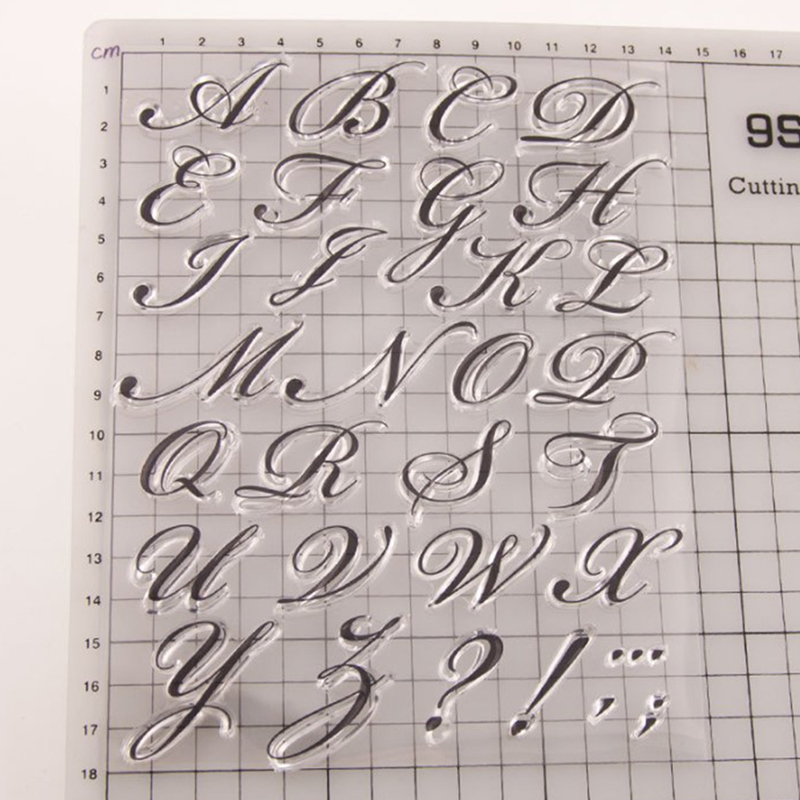 cm 1 2 3 4 5 6 7 8 9 10 11 12 13 14 15 16 17
1
2
3
4
5
6
7
8
9
10
11
12
13
14
15
16
17
18
A B C D
E F G H
I J K L
M N O P
Q R S T
U V W X
Y Z ? ! ... , ;
9S
Cuttin